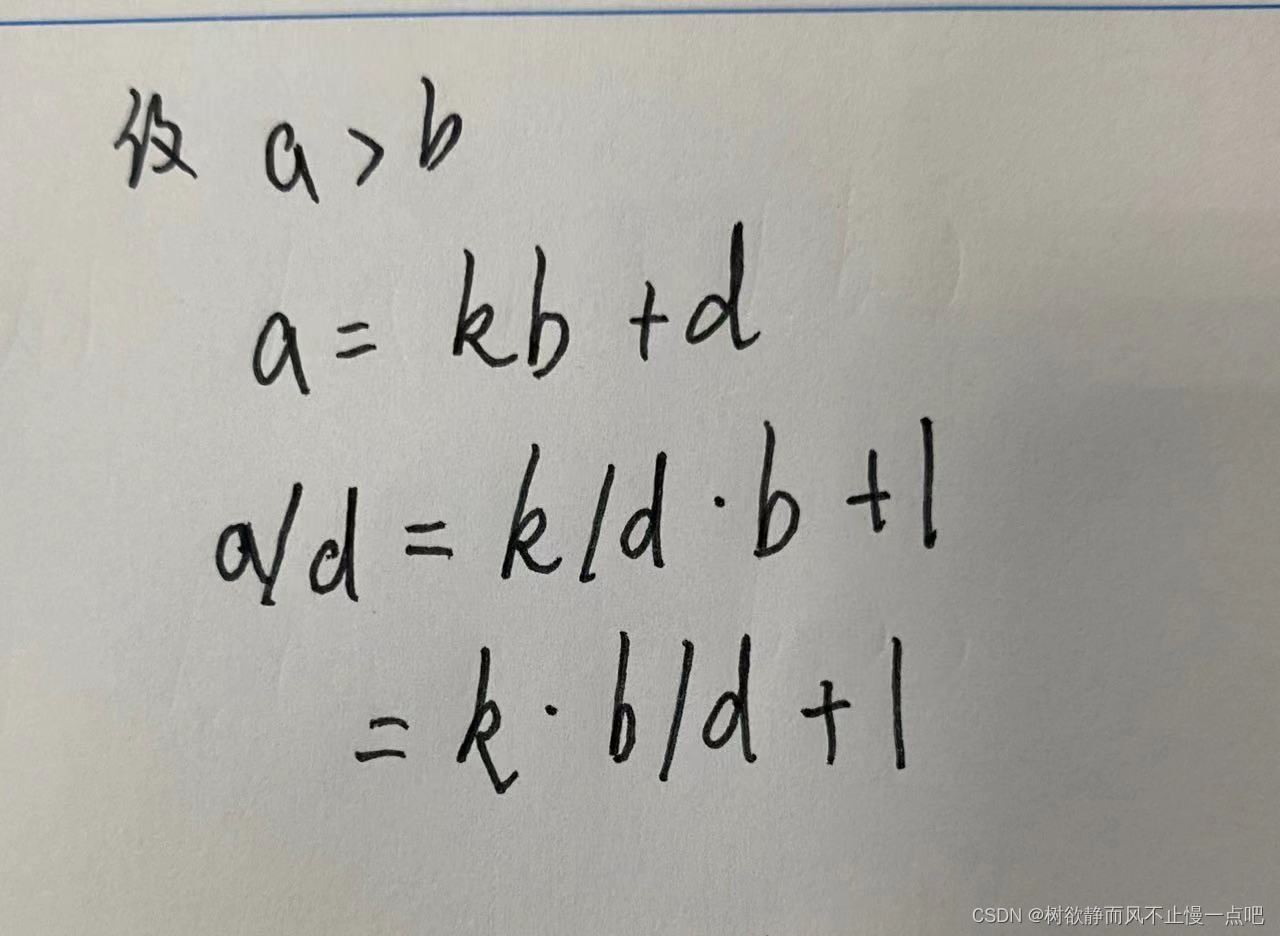 设 a > b
a = kb + d
a/d = k/d · b + 1
= k · b/d + 1
CSDN @树欲静而风不止慢一点吧